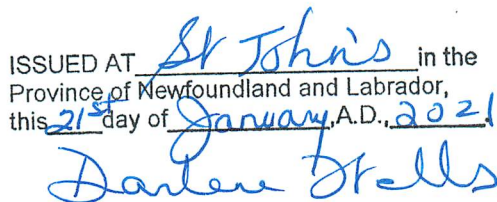 ISSUED AT St John's in the
Province of Newfoundland and Labrador,
this 21st day of January, A.D., 2021.
Darlene Wells